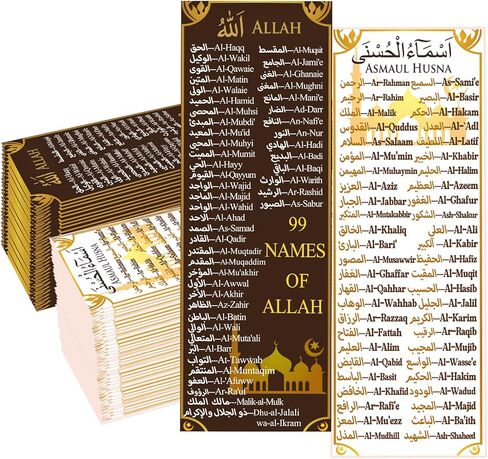 الله ALLAH
الحق—Al-Haqq
الوكيل—Al-Wakil
القوى—Al-Qawaie
المتين—Al-Matin
الولى—Al-Walaie
الحميد—Al-Hamid
المحصى—Al-Muhsi
المبدئ—Al-Mubdi'
المعيد—Al-Mu'id
المحيى—Al-Muhyi
المميت—Al-Mumit
الحي—Al-Hayy
القيوم—Al-Qayyum
الواجد—Al-Wajid
الماجد—Al-Majid
الواحد—Al-Wahid
الاحد—Al-Ahad
الصمد—As-Samad
القادر—Al-Qadir
المقتدر—Al-Muqtadir
المقدم—Al-Muqaddim
المؤخر—Al-Mu'akhir
الأول—Al-Awwal
الأخر—Al-Akhir
الظاهر—Az-Zahir
الباطن—Al-Batin
الوالي—Al-Wali
المتعالي—Al-Muta'ali
البر—Al-Barr
التواب—At-Tawwab
المنتقم—Al-Muntaqim
العفو—Al-'Afuww
الرؤوف—Ar-Ra'uf
مالك الملك—Malik-al-Mulk
ذو الجلال والإكرام—Dhu-al-Jalali
wa-al-Ikram
المقسط—Al-Muqsit
الجامع—Al-Jami'e
الغنى—Al-Ghanaie
المغنى—Al-Mughni
المانع—Al-Mani'e
الضار—Ad-Darr
النافع—An-Nafi'e
النور—An-Nur
الهادي—Al-Hadi
البديع—Al-Badi
الباقي—Al-Baqi
الوارث—Al-Warith
الرشيد—Ar-Rashid
الصبور—As-Sabur
99
NAMES
OF
ALLAH
أسماء الحسنى
ASMAUL HUSNA
الرحمن—Ar-Rahman
الرحيم—Ar-Rahim
الملك—Al-Malik
القدوس—Al-Quddus
السلام—As-Salaam
المؤمن—Al-Mu'min
المهيمن—Al-Muhaymin
العزيز—Al-Aziz
الجبار—Al-Jabbar
المتكبر—Al-Mutakabbir
الخالق—Al-Khaliq
البارئ—Al-Bari'
المصور—Al-Musawwir
الغفار—Al-Ghaffar
القهار—Al-Qahhar
الوهاب—Al-Wahhab
الرزاق—Ar-Razzaq
الفتاح—Al-Fattah
العليم—Al-Alim
القابض—Al-Qabid
الباسط—Al-Basit
الخافض—Al-Khafid
الرافع—Ar-Rafi'e
المعز—Al-Mu'ezz
المذل—Al-Mudhill
السميع—As-Sami'e
البصير—Al-Basir
الحكم—Al-Hakam
العدل—Al-'Adl
اللطيف—Al-Latif
الخبير—Al-Khabir
الحليم—Al-Halim
العظيم—Al-Azeem
الغفور—Al-Ghafur
الشكور—Ash-Shakur
العلي—Al-Ali
الكبير—Al-Kabir
الحفيظ—Al-Hafiz
المقيت—Al-Muqit
الحسيب—Al-Hasib
الجليل—Al-Jalil
الكريم—Al-Karim
الرقيب—Ar-Raqib
المجيب—Al-Mujib
الواسع—Al-Wasse'e
الحكيم—Al-Hakim
الودود—Al-Wadud
المجيد—Al-Majid
الباعث—Al-Ba'ith
الشهيد—Ash-Shaheed
ALLAH
ASMAUL HUSNA